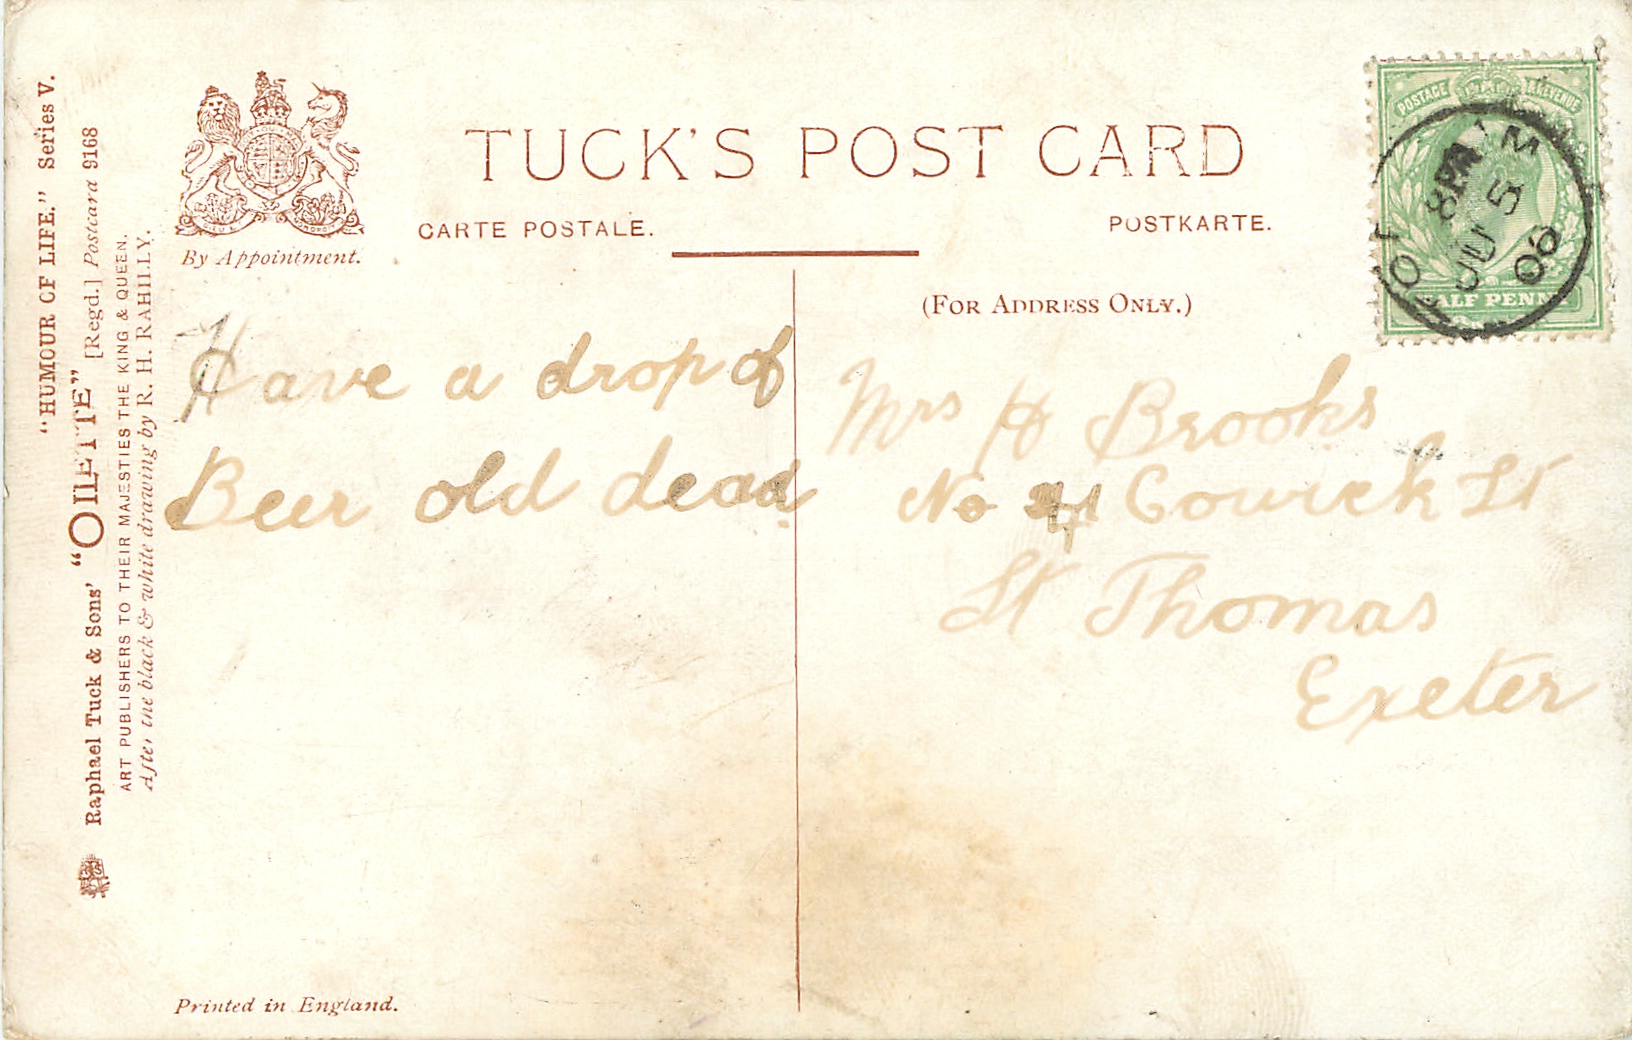 "HUMOUR OF LIFE." Series V.
Raphael Tuck & Sons' "OILETTE" [Regd.] Postcard 9168
ART PUBLISHERS TO THEIR MAJESTIES THE KING & QUEEN.
After the black & white drawing by R. H. RAHILLY.
By Appointment.
TUCK'S POST CARD
CARTE POSTALE.
POSTKARTE.
(FOR ADDRESS ONLY.)
POSTAGE & REVENUE
HALF PENNY
8 PM
JU 5
06
Have a drop of
Beer old dead
Mrs H Brooks
No Cowick St
St Thomas
Exeter
Printed in England.